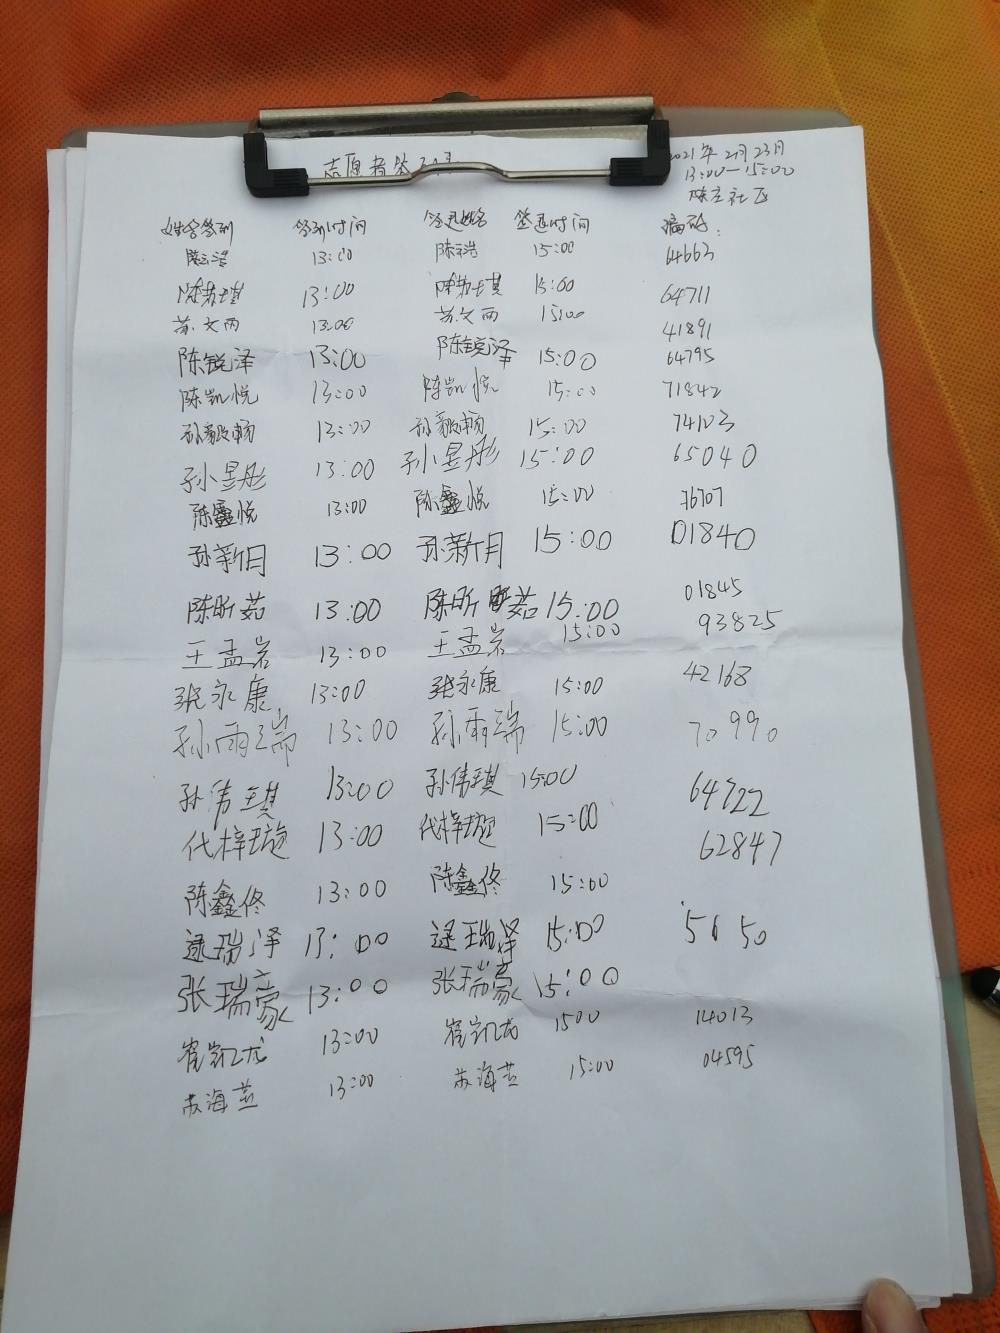 志愿者签
2021年2月23日
13:00—15:00
陈庄社区
姓名签到 签到时间 签退姓名 签退时间 编码:
陈云浩 13:00 陈云浩 15:00 64663
陈苏琪 13:00 陈苏琪 15:00 64711
苏文丙 13:00 苏文丙 15:00 41891
陈锐泽 13:00 陈锐泽 15:00 64795
陈凯悦 13:00 陈凯悦 15:00 71842
孙毅畅 13:00 孙毅畅 15:00 74103
孙昱彤 13:00 孙昱彤 15:00 65040
陈鑫悦 13:00 陈鑫悦 15:00 76707
孙新月 13:00 孙新月 15:00 01840
陈昕茹 13:00 陈昕茹 15:00 01845
王孟岩 13:00 王孟岩 15:00 93825
张永康 13:00 张永康 15:00 42168
孙雨瑞 13:00 孙雨瑞 15:00 70990
孙伟琪 13:00 孙伟琪 15:00 64722
代梓璇 13:00 代梓璇 15:00 62847
陈鑫佟 13:00 陈鑫佟 15:00
逯瑞泽 13:00 逯瑞泽 15:00 5650
张瑞豪 13:00 张瑞豪 15:00
崔凯龙 13:00 崔凯龙 1500 14013
苏海芸 13:00 苏海芸 15:00 04595